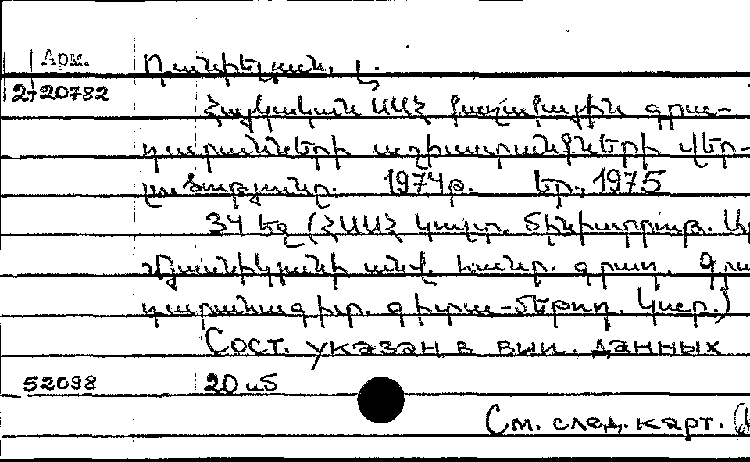 Арм.
Դանիելյան, Լ.
2+20782
Հայկական ՍՍՀ մասսայական գրա-
դարանների աշխատանքների վեր-
լուծությունը. 1974թ. Եր., 1975
34 եջ (ՀՍՍՀ կուլտ. մինիստրութ. Ա.
Մյասնիկյանի անվ. հանր. գրադ. Գրա
դարանագիտ. գիտա-մեթոդ. կաբ.)
Сост. указан в вып. данных
52098 20 иб
См. след. карт.